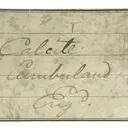 Calcite
Cumberland
Eng.